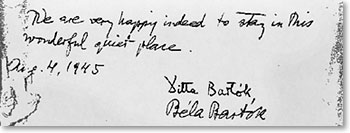 We are very happy indeed to stay in this
wonderful quiet place.
Aug. 4, 1945
Ditta Bartók
Béla Bartók